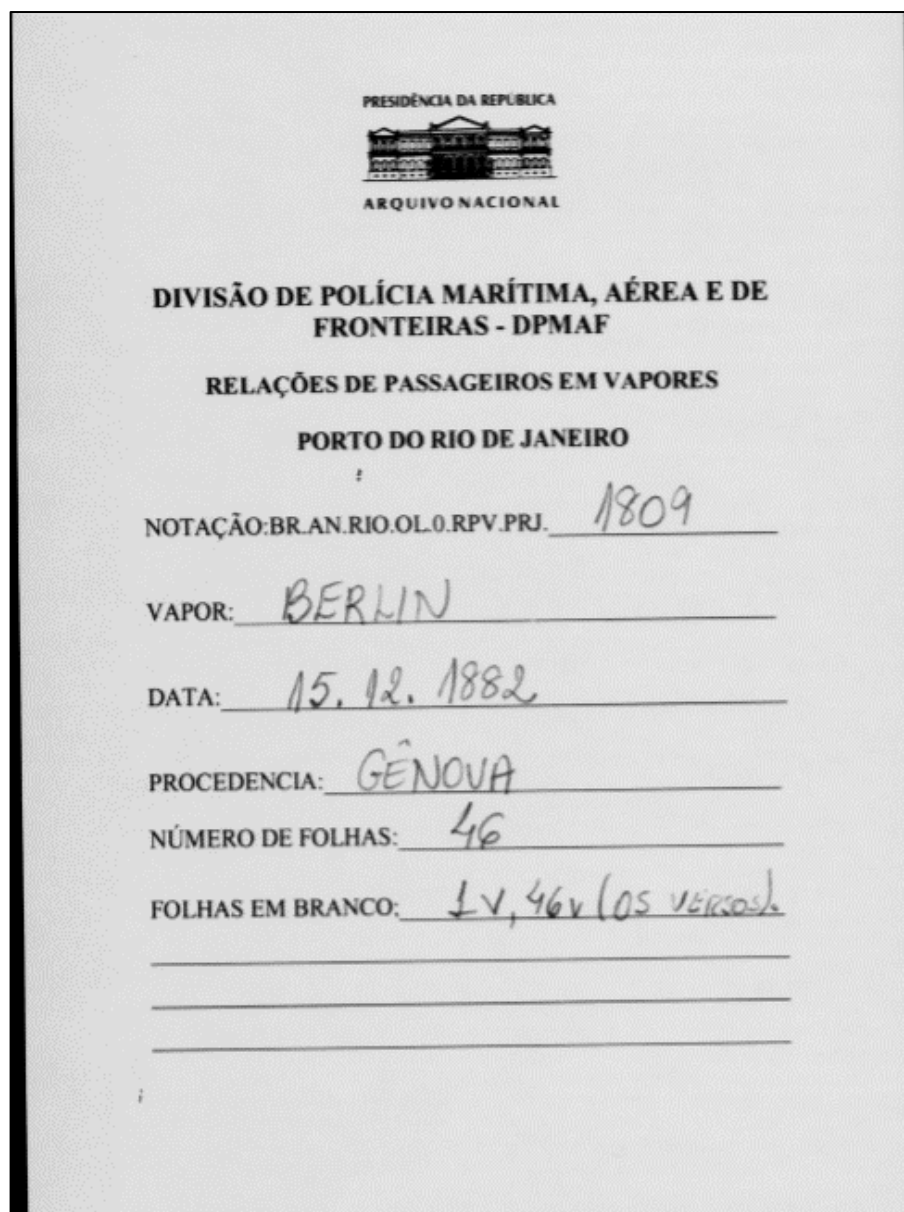 PRESIDÊNCIA DA REPÚBLICA
ARQUIVO NACIONAL
DIVISÃO DE POLÍCIA MARÍTIMA, AÉREA E DE
FRONTEIRAS - DPMAF
RELAÇÕES DE PASSAGEIROS EM VAPORES
PORTO DO RIO DE JANEIRO
NOTAÇÃO:BR.AN.RIO.OL.0.RPV.PRJ. 1809
VAPOR: BERLIN
DATA: 15.12.1882
PROCEDENCIA: GÊNOVA
NÚMERO DE FOLHAS: 46
FOLHAS EM BRANCO: 1v, 46v (OS VERSOS).